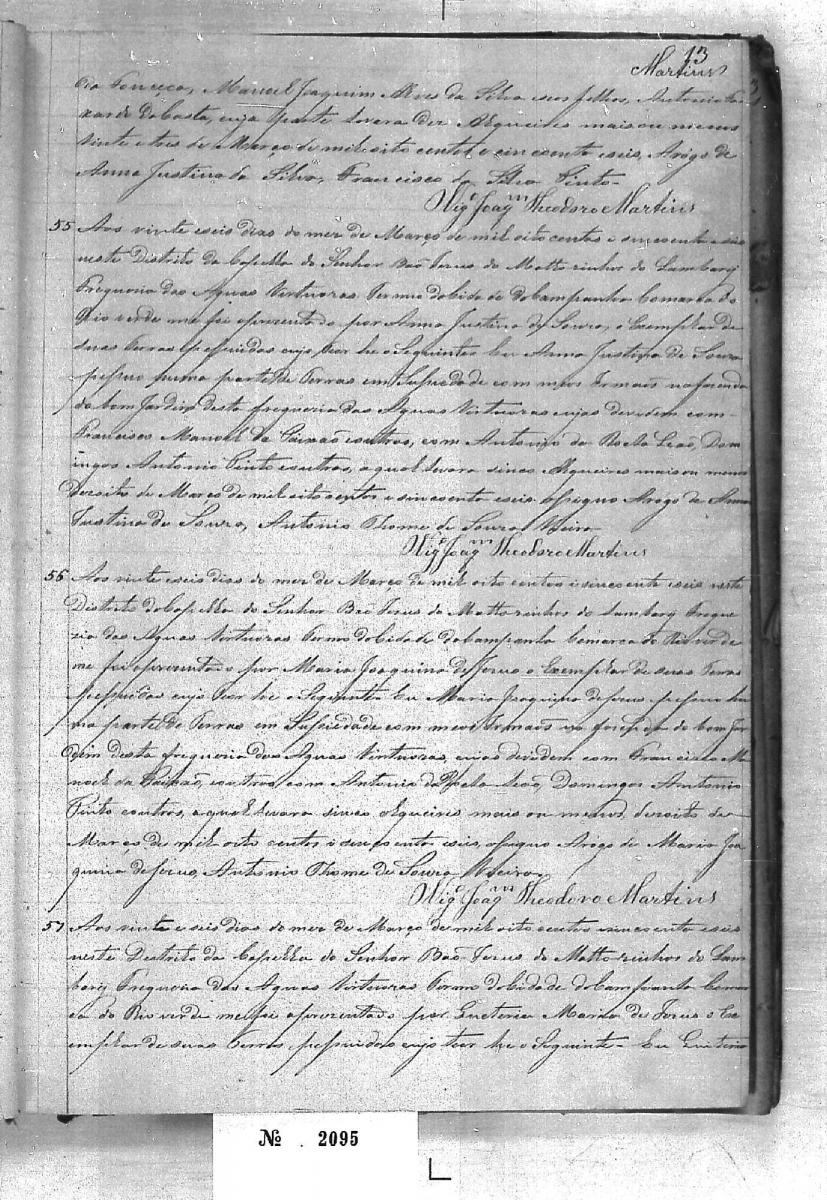 13
Martins
da Fonseca, Manoel Joaquim Alves da Silva e seos filhos, Antonio
da Costa, cuja parte levara dez Alqueires mais ou menos
vinte e tres de Março de mil oito centos e sincoenta e seis, Arôgo de
Anna Justina da Silva, Francisco da Silva Pinto-
Vigº Joaqm Theodoro Martins
55 Aos vinte e seis dias do mez de Março de mil oito centos e sincoenta e seis
neste Distrito da Capella do Senhor Bão Jesus do Mattozinhos do Lambary
Freguezia das Agoas Virtuozas Termo da Cidade da Campanha Comarca do
Rio verde me foi aprezentado por Anna Justina de Souza, o Exemplar de
suas Terras pessuidas cujo teor he o Seguinte Eu Anna Justina de Souza
pessuo huma parte de Terras em Susiedade com meus Irmaõs na fazenda
do bom Jardim desta freguezia das Agoas Virtuozas cujas devidem com-
Francisco Manoel da Paixaõ e outros, com Antonio da Rocha Leaõ, Dom-
ingos Antonio Pinto e outros, a qual levara sinco Alqueires mais ou menos
dezoito de Março de mil oito centos e sincoenta e seis Arogo de Anna
Justina de Souza, Antonio Thome de Souza Meira
Vigº Joaqm Theodoro Martins
56 Aos vinte e seis dias do mez de Março de mil oito centos e sincoenta e seis neste
Distrito da Capella do Senhor Bão Jesus do Mattozinhos do Lambary Fregue
zia das Agoas Virtuozas Termo da Cidade da Campanha Comarca do Rio verde
me foi aprezentado por Maria Joaquina de Jesus o Exemplar de suas Terras
pessuidas cujo teor he o Seguinte Eu Maria Joaquina de Jesus pessuo hu
ma parte de Terras em Susiedade com meos Irmaõs na fazenda do bom Jar
dim desta freguezia das Agoas Virtuozas, cujas devidem com Francisco Ma
noel da Paixaõ, e outros com Antonio da Rocha Leaõ, Domingos Antonio
Pinto e outros, a qual levara sinco alqueires mais ou menos, dezoito de
Março de mil oito centos e sincoenta e seis, Arogo de Maria Joa
quina de Jesus, Antonio Thome de Souza Meira
Vigº Joaqm Theodoro Martins
57 Aos vinte e seis dias do mez de Março de mil oito centos sincoenta e seis
neste Distrito da Capella do Senhor Bão Jesus do Mattozinhos do Lam
bary Freguezia das Agoas Virtuozas Termo da Cidade da Campanha Comar
ca do Rio verde me foi aprezentado por Maria de Jesus o Ex
emplar de suas Terras pessuidas cujo teor he o Seguinte- Eu
Nº 2095